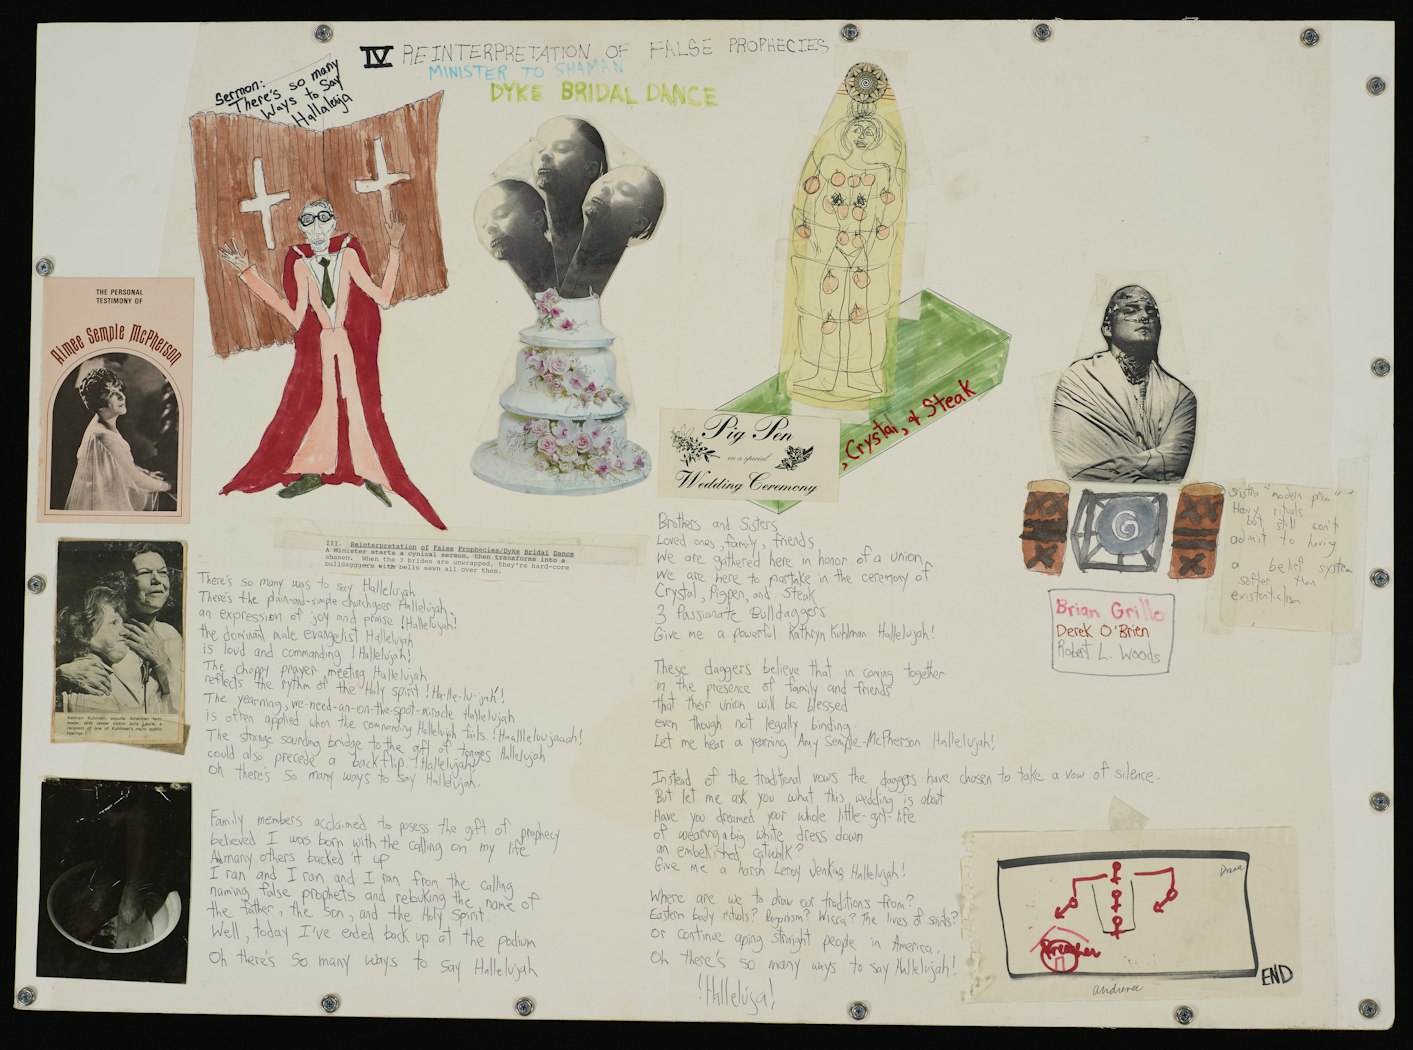 IV REINTERPRETATION OF FALSE PROPHECIES
MINISTER TO SHAMAN
DYKE BRIDAL DANCE
Sermon:
There's so many
Ways to Say
Hallaluja
THE PERSONAL
TESTIMONY OF
Aimee Semple McPherson
Kathryn Kuhlman, popular American faith
healer, with cancer victim
recipient of one of Kuhlman's many public
healings.
III. Reinterpretation of False Prophecies/Dyke Bridal Dance
A Minister starts a cynical sermon, then transforms into a
shaman. When the 3 brides are unwrapped, they're hard-core
bulldagggers with bells sewn all over them.
There's so many was to say Hallelujah
There's the plain-and-simple churchgoer Hallelujah.
an expression of joy and praise !Hallelujah!
the dominant male evangelist Hallelujah
is loud and commanding !Hallelujah!
The choppy prayer meeting Hallelujah
reflects the rythm of the Holy spirit !Ha-lle-lu-jaH!
The yearning, we-need-an-on-the-spot-miracle Hallelujah
is often applied when the commanding Hallelujah fails. !Haallleluujaaah!
The strange sounding bridge to the gift of tonges Hallelujah
could also precede a backflip !Hallelujah!
Oh there's so many ways to say Hallelujah.
Family members acclaimed to posess the gift of prophecy
believed I was born with the calling on my life
As many others backed it up
I ran and I ran and I ran from the calling
naming false prophets and rebuking the name of
the father, the Son, and the Holy Spirit.
Well, today I've ended back up at the podium
Oh there's so many ways to say Hallelujah
Pig Pen
in a special
Wedding Ceremony
, Crystal, & Steak
Brothers and Sisters
Loved ones, family, friends
We are gathered here in honor of a union
We are here to partake in the ceremony of
Crystal, Pigpen, and Steak
3 Passionate Bulldaggers
Give me a powerful Kathryn Kuhlman Hallelujah!
These daggers believe that in coming together
in the presence of family and friends
that their union will be blessed
even though not legally binding.
Let me hear a yearning Amy Semple-McPherson Hallelujah!
Instead of the traditional vows the daggers have chosen to take a vow of silence.
But let me ask you what this wedding is about
Have you dreamed your whole little-girl-life
of wearing a big white dress down
an embellished catwalk?
Give me a harsh Leroy Jenkins Hallelujah!
Where are we to draw our traditions from?
Eastern body rituals? Paganism? Wicca? The lives of saints?
Or continue aping straight people in America.
Oh there's so many ways to say Hallelujah!
!Halleluja!
G
"modern prim"
Heavy rituals
but still won't
admit to having
a belief system
softer than
existentialism
Brian Grillo
Derek O'Brien
Robert L. Woods
Preacher
audience
END